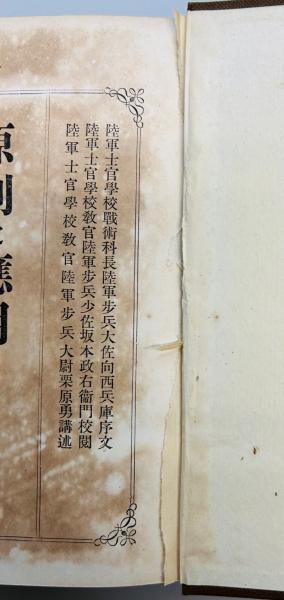 陸軍士官學校戰術科長陸軍步兵大佐向西兵庫序文
陸軍士官學校敎官陸軍步兵少佐坂本政右衞門校閱
陸軍士官學校敎官陸軍步兵大尉栗原勇講述
原則と應用